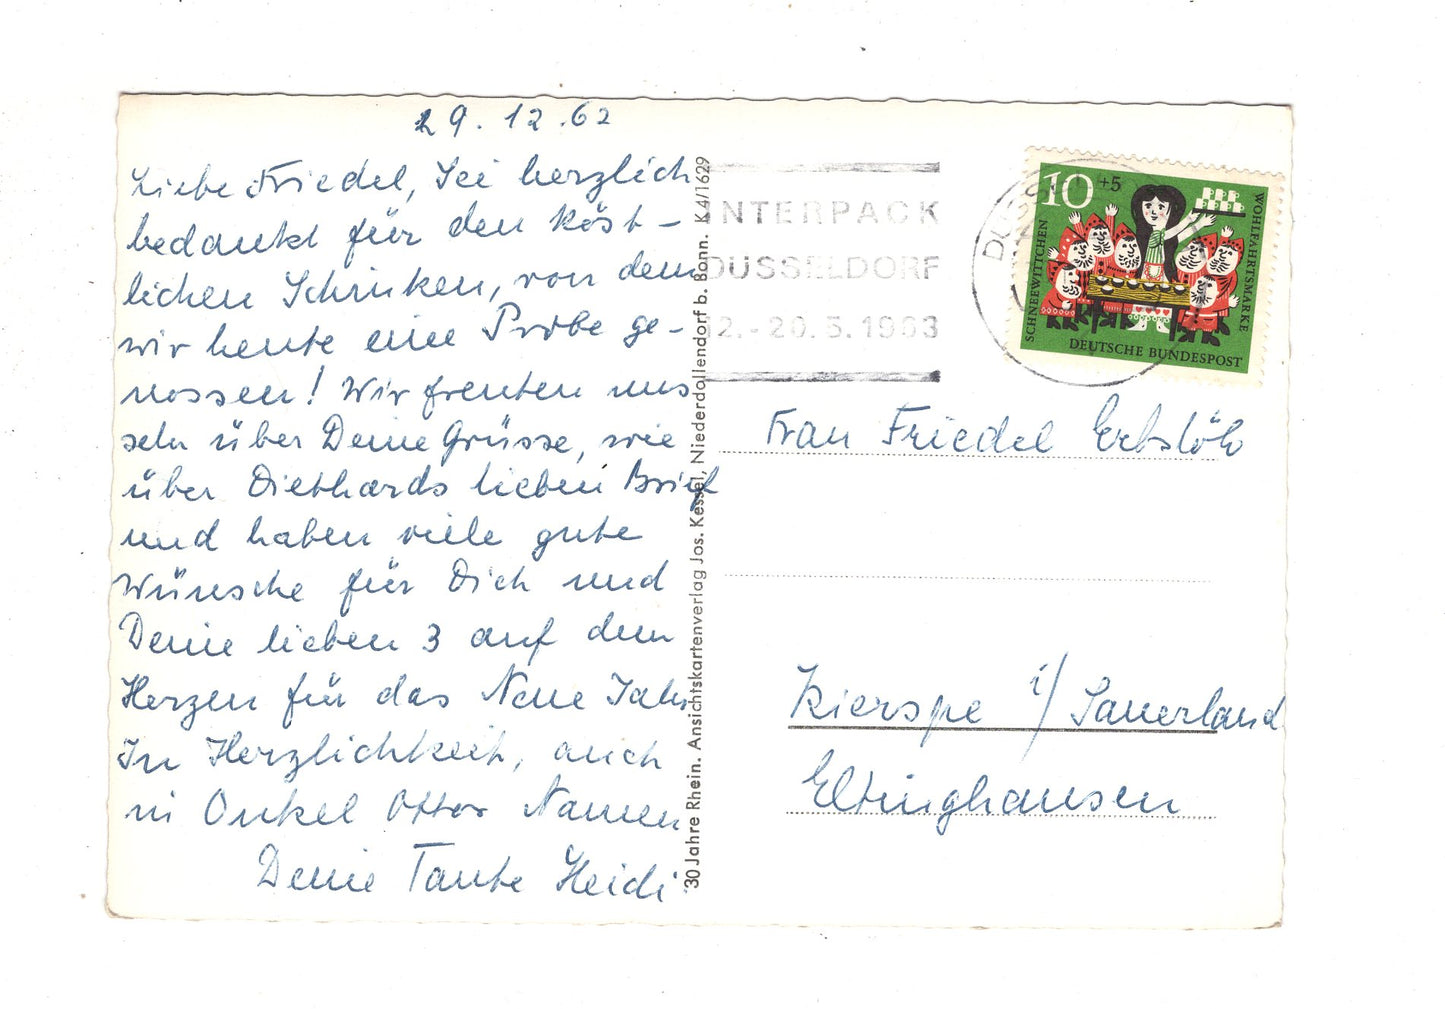 29.12.62
Liebe Friedel, Sei herzlich
bedankt für den köst-
lichen Schinken, von dem
wir heute eine Probe ge-
nossen! Wir freuten uns
sehr über Deine Grüsse, wie
über Diethards lieben Brief
und haben viele gute
Wünsche für Dich und
Deine lieben 3 auf dem
Herzen für das Neue Jahr
In Herzlichkeit, auch
in Onkel Ottos Namen
Deine Tante Heidi
30 Jahre Rhein. Ansichtskartenverlag Jos. Kessel, Niederdollendorf b. Bonn. K4/1629
INTERPACK
DÜSSELDORF
12.-20.5.1963
10 +5
SCHNEEWITTCHEN
WOHLFAHRTSMARKE
DEUTSCHE BUNDESPOST
Frau Friedel Erbslöh
Kierspe i/Sauerland
Eltinghausen